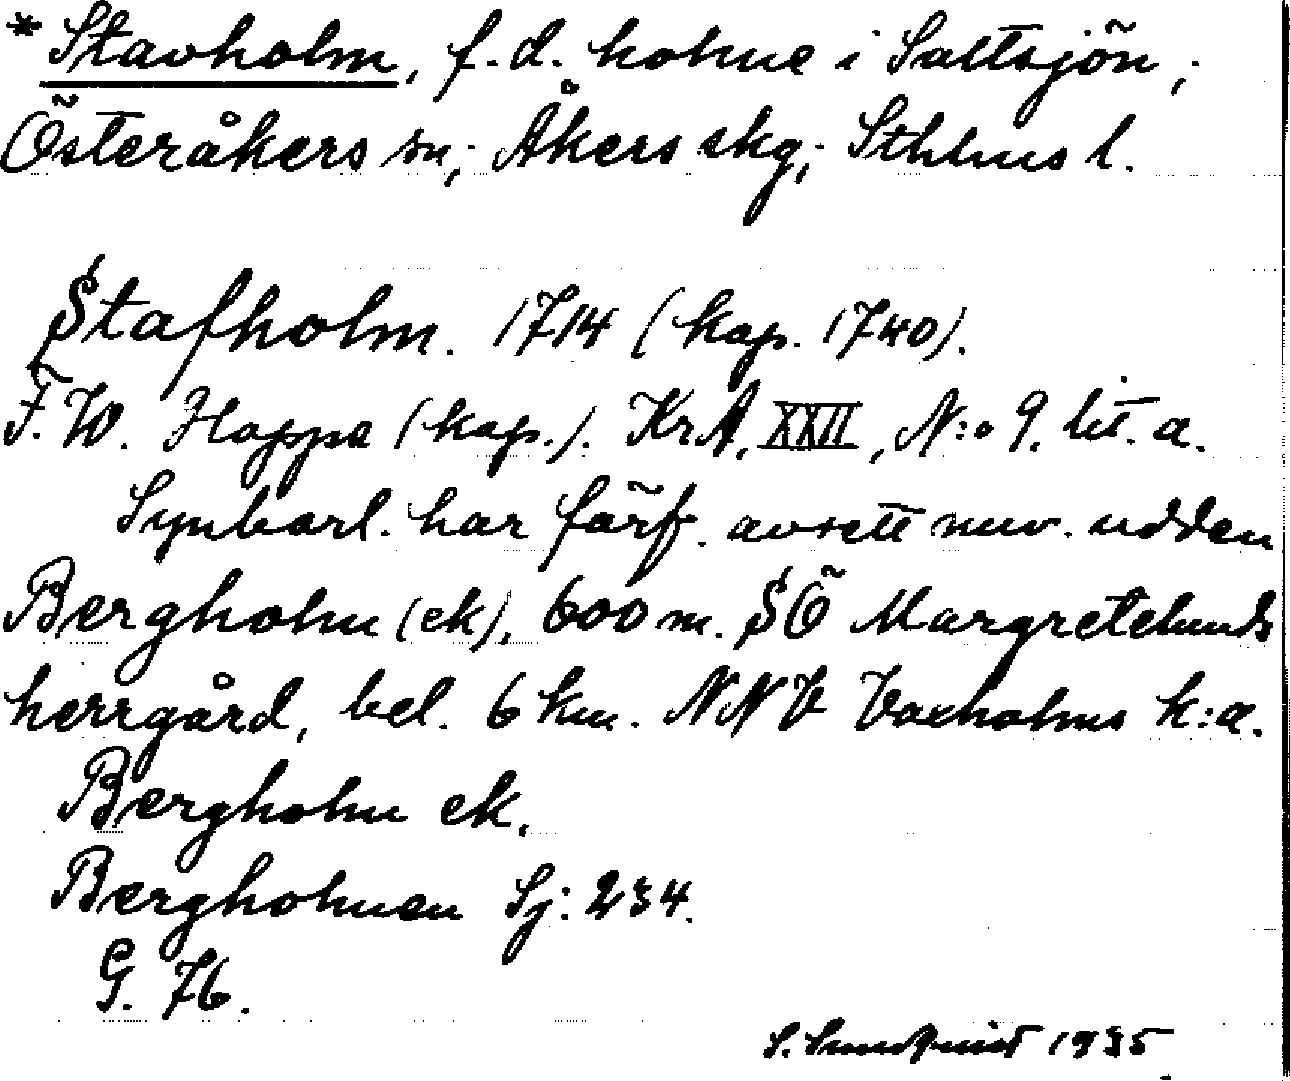 *Stavholm, f.d. holme i Saltsjön,;
Österåkers sn,; Åkers skg,; Sthlms l.
Stafholm. 1714 (kap. 1740).
F.W. Hoppe (kap.). KrA. XXII, N:o 9. lit. a.
Synbarl. har färf. avsett nuv. udden
Bergholm (ek), 600 m. SÖ Margretelunds
herrgård, bel. 6 km. NNV Vaxholms k:a.
Bergholm ek.
Bergholmen Sj: 234.
G. 76.
S. Sundqvist 1935